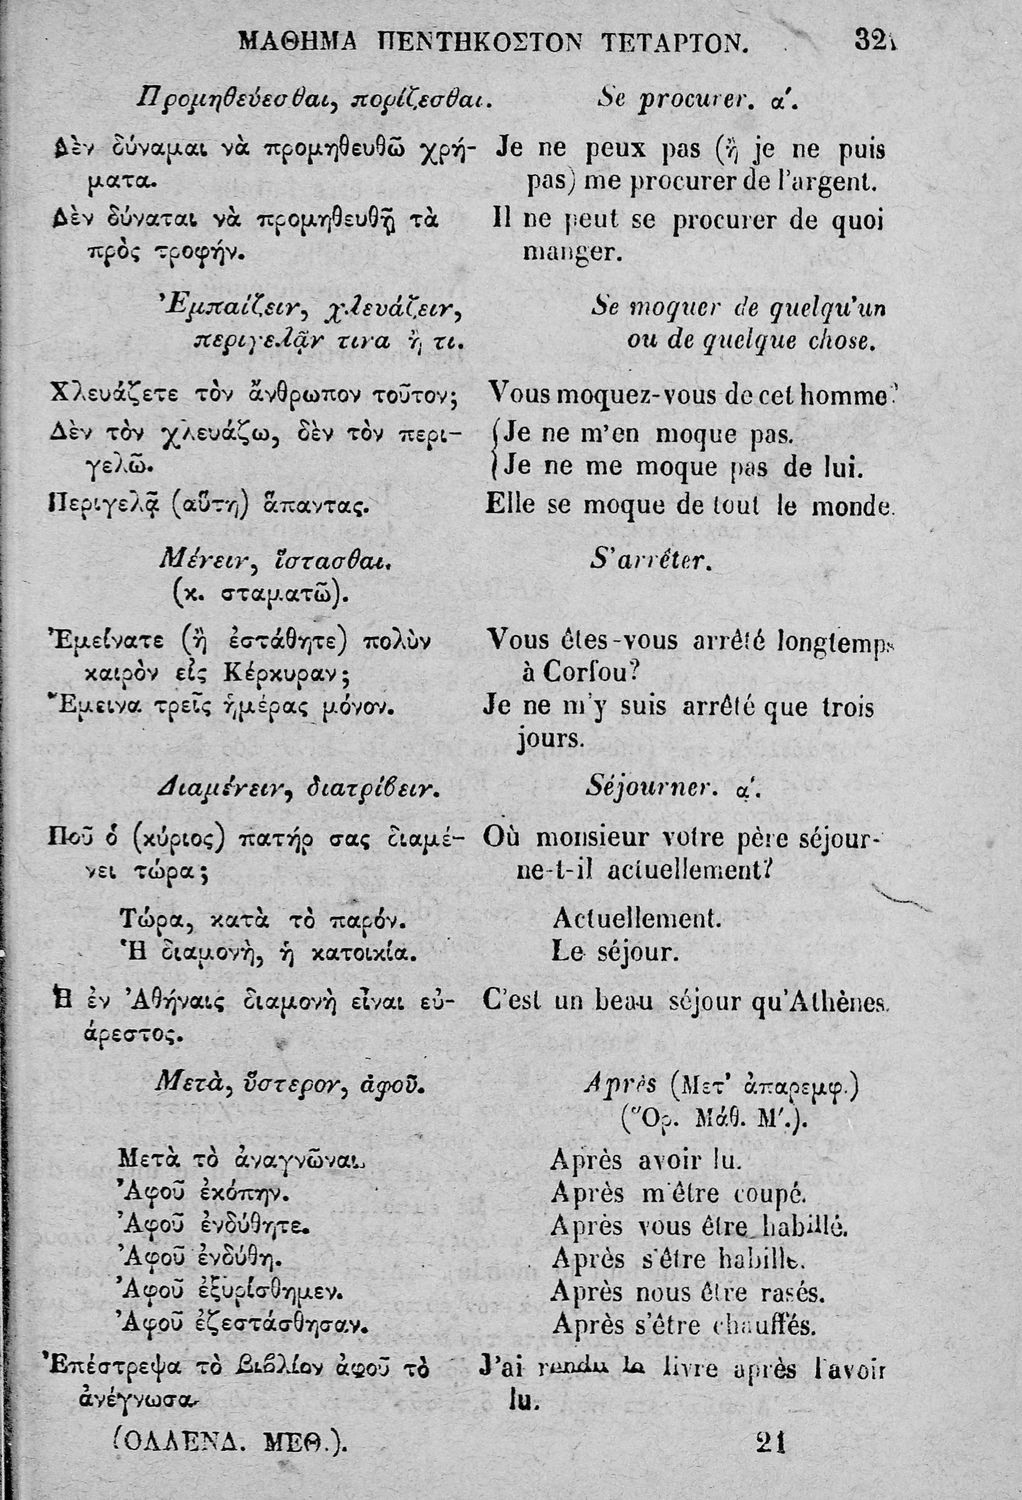 ΜΑΘΗΜΑ ΠΕΝΤΗΚΟΣΤΟΝ ΤΕΤΑΡΤΟΝ. 321
Προμηθεύεσθαι, πορίζεσθαι. Se procurer. α'.
Δὲν δύναμαι νὰ προμηθευθῶ χρή- Je ne peux pas (ἢ je ne puis
ματα. pas) me procurer de l'argent.
Δὲν δύναται νὰ προμηθευθῇ τὰ Il ne peut se procurer de quoi
πρὸς τροφήν. manger.
Ἐμπαίζειν, χλευάζειν, Se moquer de quelqu'un
περιγελᾷν τινα ἢ τι. ou de quelque chose.
Χλευάζετε τὸν ἄνθρωπον τοῦτον; Vous moquez-vous de cet homme?
Δὲν τὸν χλευάζω, δὲν τὸν περι- (Je ne m'en moque pas.
γελῶ. (Je ne me moque pas de lui.
Περιγελᾷ (αὕτη) ἅπαντας. Elle se moque de tout le monde.
Μένειν, ἵστασθαι. S'arrêter.
(κ. σταματῶ).
Ἐμείνατε (ἢ ἐστάθητε) πολὺν Vous êtes-vous arrêté longtemps
καιρὸν εἰς Κέρκυραν; à Corfou?
Ἔμεινα τρεῖς ἡμέρας μόνον. Je ne m'y suis arrêté que trois
jours.
Διαμένειν, διατρίβειν. Séjourner. α'.
Ποῦ ὁ (κύριος) πατήρ σας διαμέ- Où monsieur votre père séjour-
νει τώρα; ne-t-il actuellement?
Τώρα, κατὰ τὸ παρόν. Actuellement.
Ἡ διαμονὴ, ἡ κατοικία. Le séjour.
Ἡ ἐν Ἀθήναις διαμονὴ εἶναι εὐ- C'est un beau séjour qu'Athènes.
άρεστος.
Μετὰ, ὕστερον, ἀφοῦ. Après (Μετ' ἀπαρεμφ.)
(Ὅρ. Μάθ. Μ'.).
Μετὰ τὸ ἀναγνῶναι. Après avoir lu.
Ἀφοῦ ἐκόπην. Après m'être coupé.
Ἀφοῦ ἐνδύθητε. Après vous être habillé.
Ἀφοῦ ἐνδύθη. Après s'être habillé.
Ἀφοῦ ἐξυρίσθημεν. Après nous être rasés.
Ἀφοῦ ἐζεστάσθησαν. Après s'être chauffés.
Ἐπέστρεψα τὸ βιβλίον ἀφοῦ τὸ J'ai rendu le livre après l'avoir
ἀνέγνωσα. lu.
(ΟΛΛΕΝΔ. ΜΕΘ.). 21